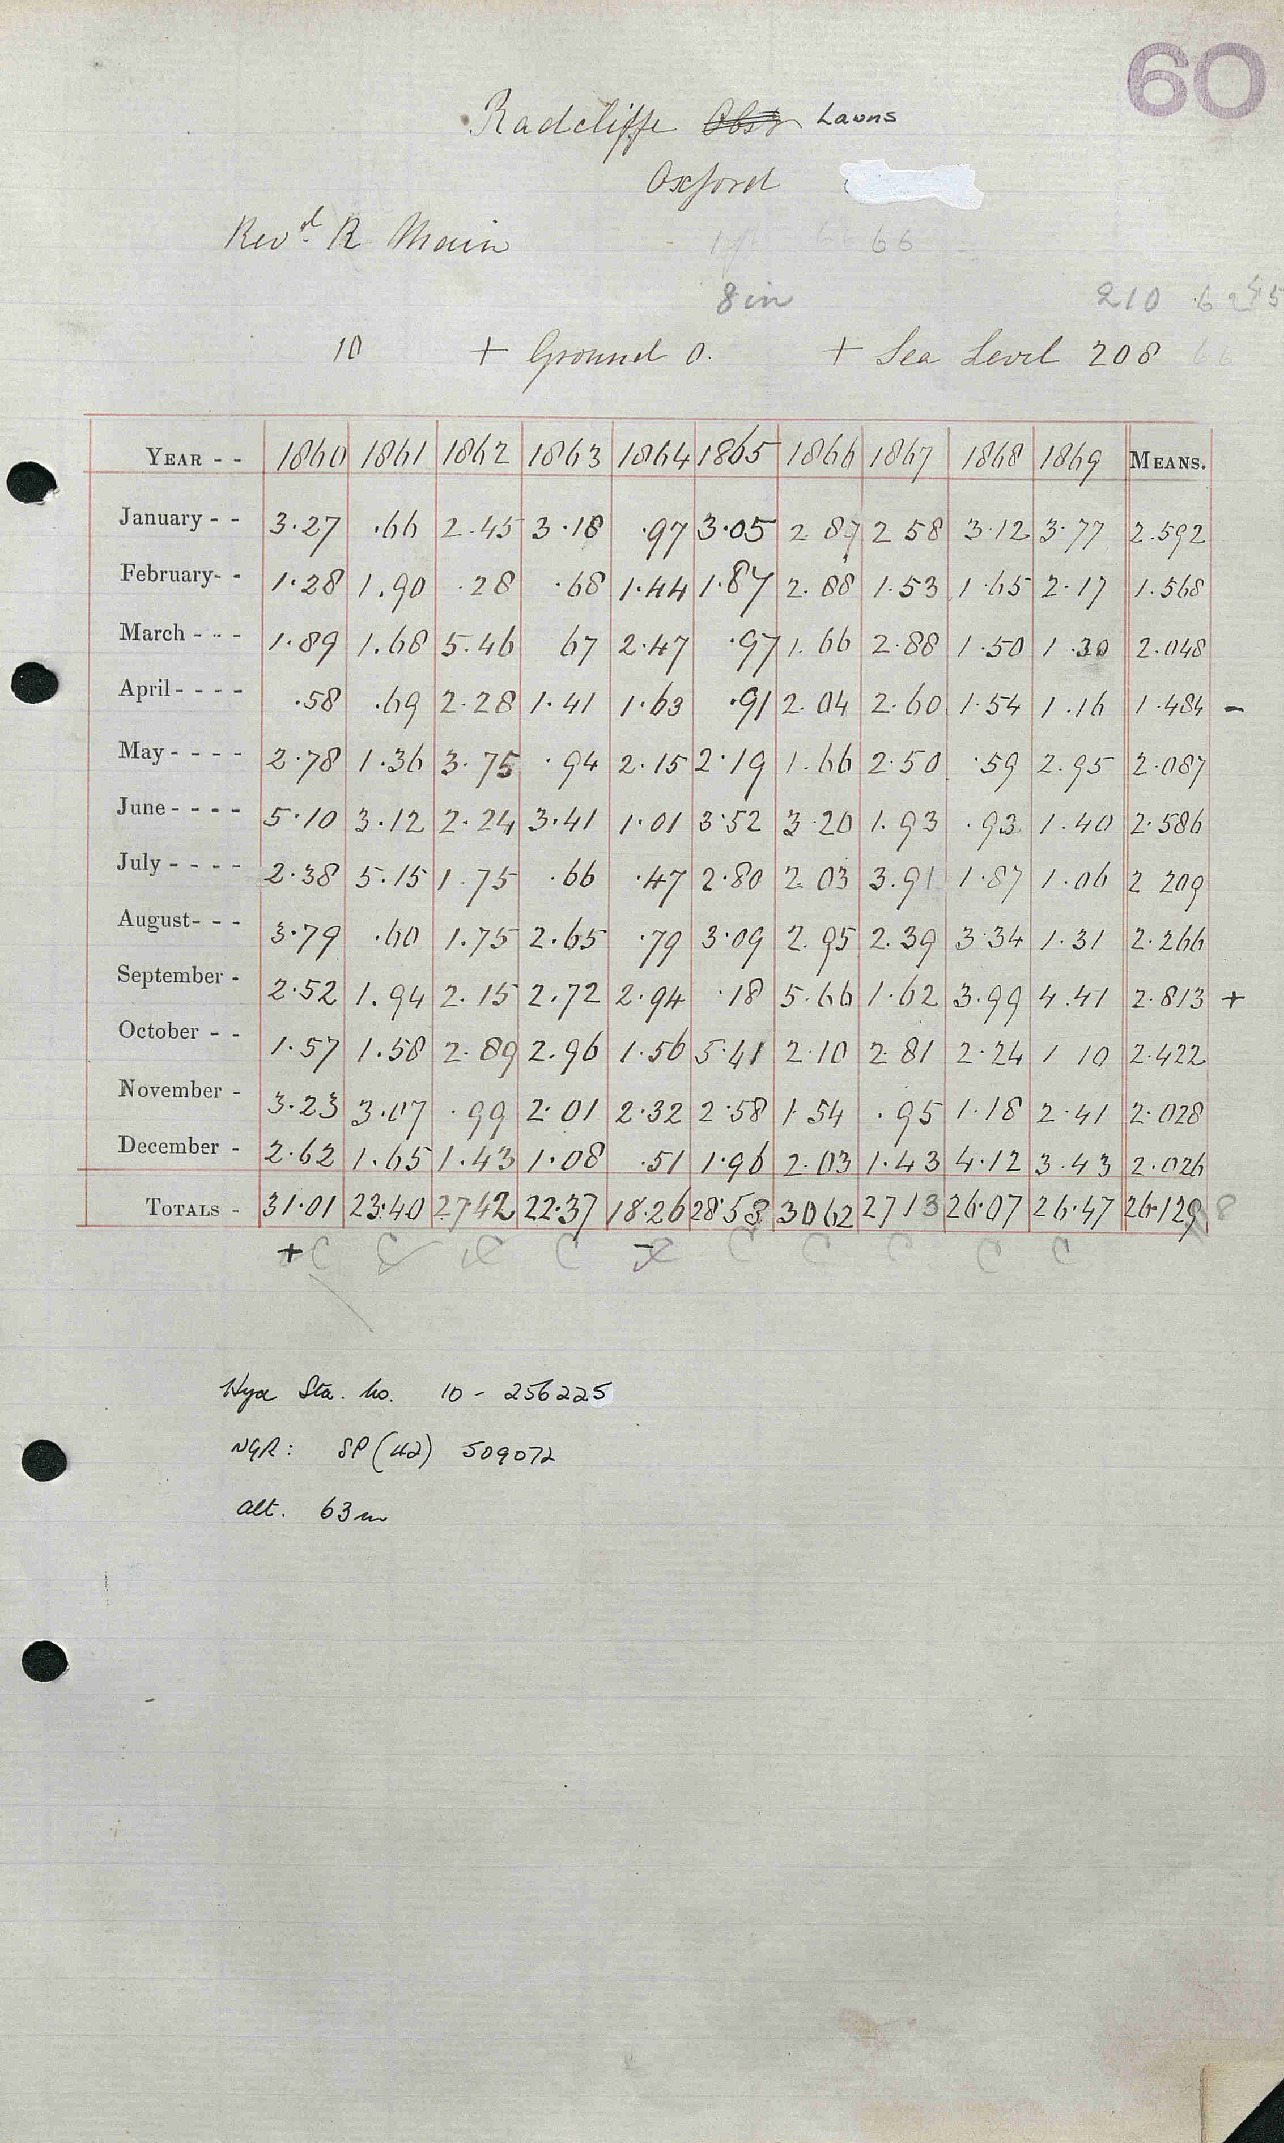 60
Radcliffe Obsy Lawns
Oxford
Revd. R Main
66
8in 210
10 + Ground 0. + Sea Level 208
YEAR - - 1860 1861 1862 1863 1864 1865 1866 1867 1868 1869 MEANS.
January - - 3.27 .66 2.45 3.18 .97 3.05 2 87 2 58 3.12 3.77 2.592
February- - 1.28 1.90 .28 .68 1.44 1.87 2.88 1.53 1.65 2.17 1.568
March - - - 1.89 1.68 5.46 67 2.47 .97 1.66 2.88 1.50 1.30 2.048
April - - - - .58 .69 2.28 1.41 1.63 .91 2.04 2.60 1.54 1.16 1.484 -
May - - - - 2.78 1.36 3.75 .94 2.15 2.19 1.66 2.50 .59 2.95 2.087
June - - - - 5.10 3.12 2.24 3.41 1.01 3.52 3.20 1.93 .93 1.40 2.586
July - - - - 2.38 5.15 1.75 .66 .47 2.80 2 03 3.91 1.87 1.06 2 209
August- - - 3.79 .60 1.75 2.65 .79 3.09 2.95 2.39 3.34 1.31 2.266
September - 2.52 1.94 2.15 2.72 2.94 .18 5.66 1.62 3.99 4.41 2.813 +
October - - 1.57 1.58 2.89 2.96 1.56 5.41 2.10 2 81 2.24 1 10 2.422
November - 3.23 3.07 .99 2.01 2.32 2.58 1.54 .95 1.18 2.41 2.028
December - 2.62 1.65 1.43 1.08 .51 1.96 2.03 1.43 4.12 3.43 2.026
TOTALS - 31.01 23.40 27 42 22.37 18.26 28.53 30 62 27 13 26.07 26.47 26.129
+ C C C C - C C C C C C
Hyd Sta. No. 10 - 256225
NGR: SP (42) 509072
alt. 63m